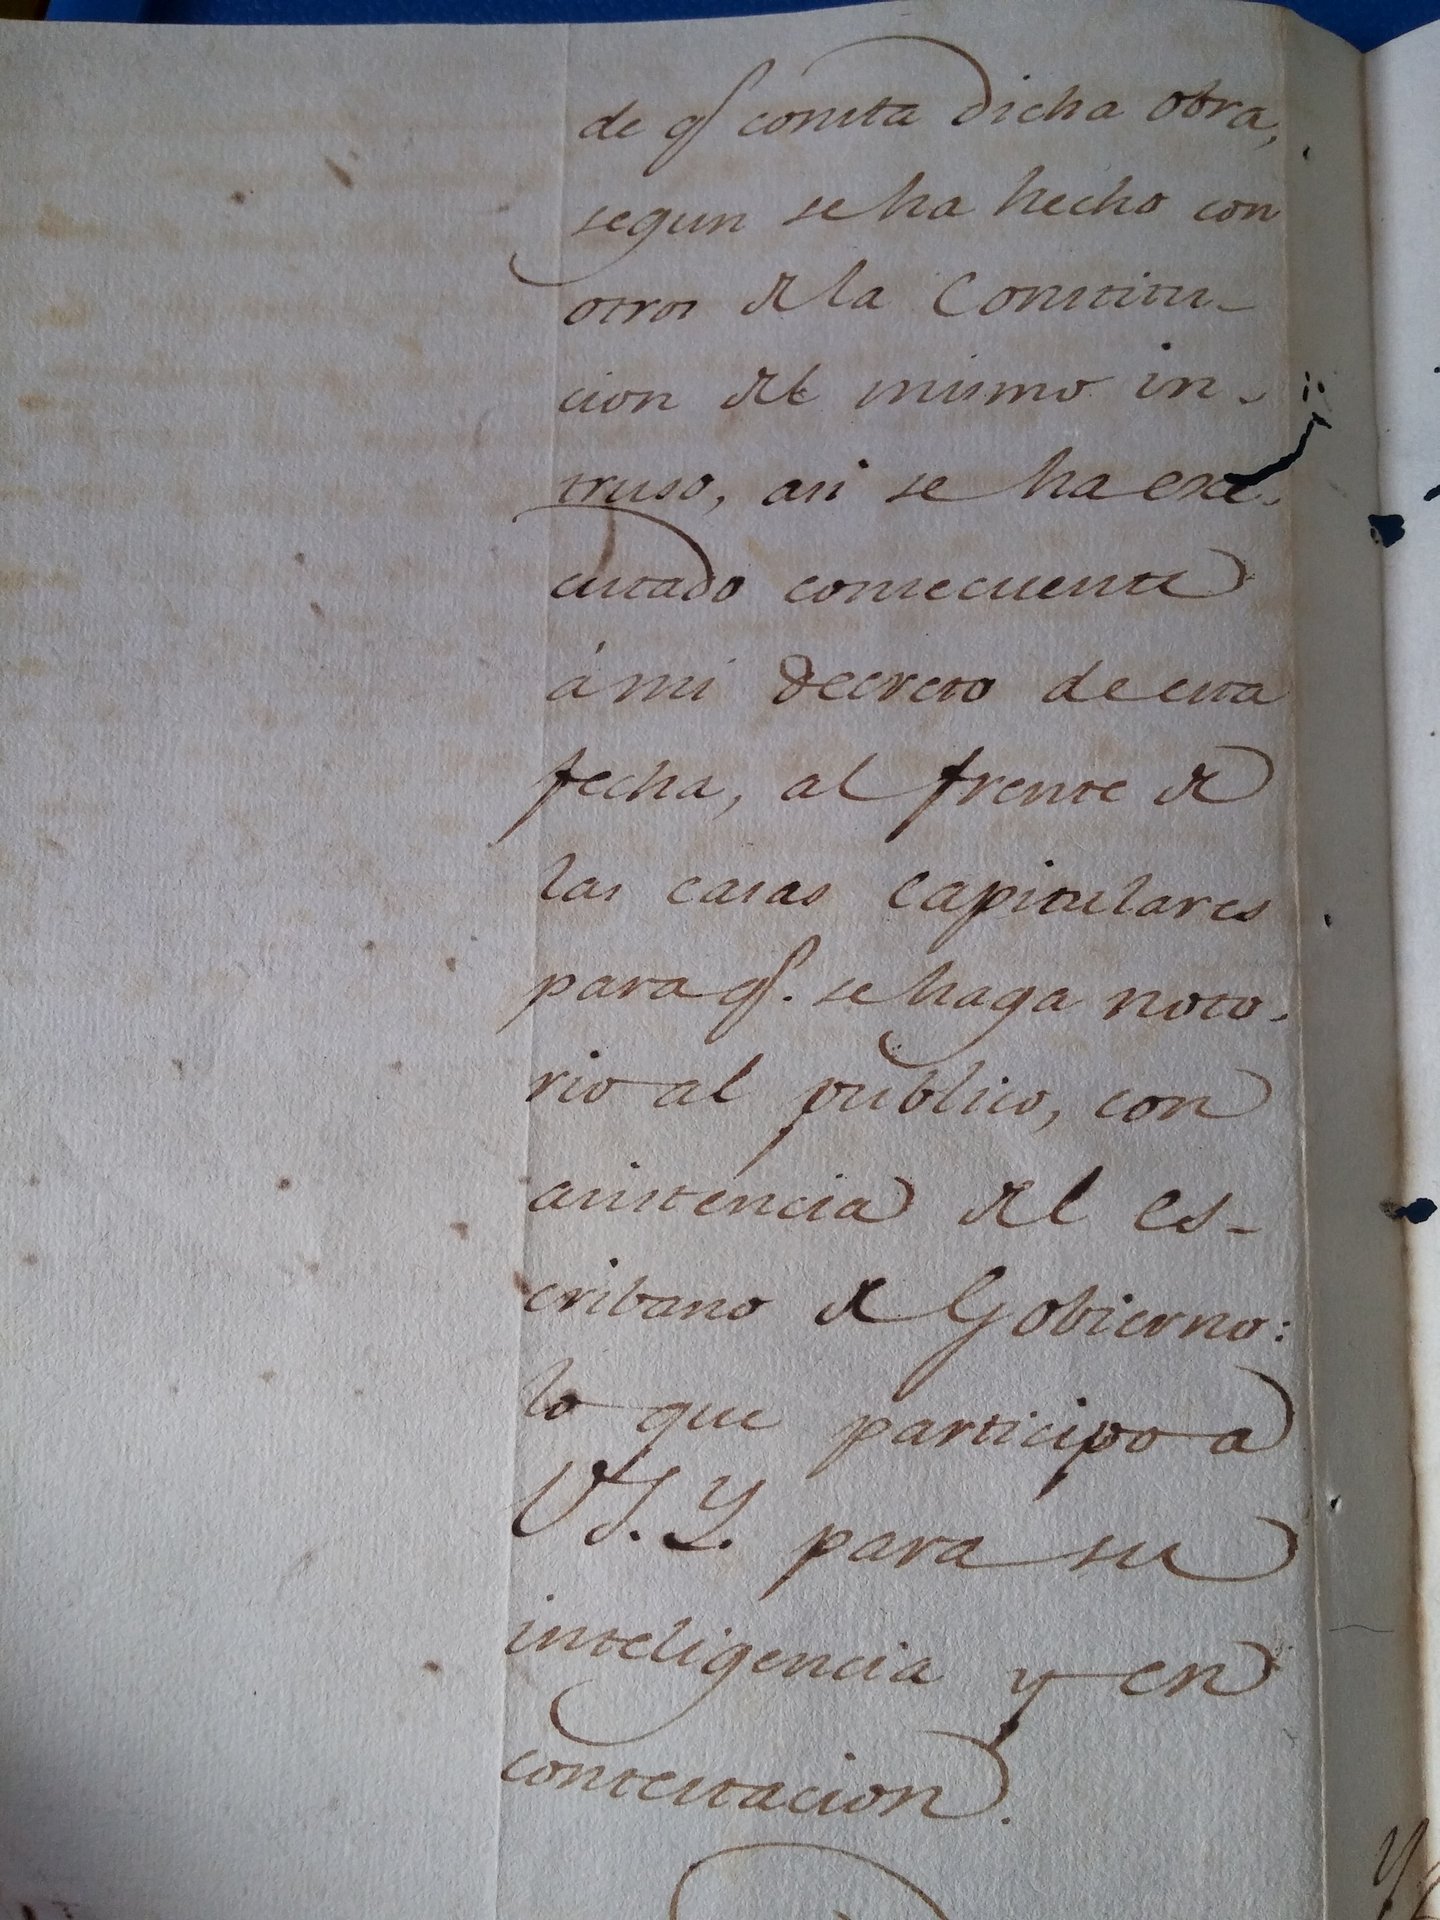 de q.e consta dicha obra,
segun se ha hecho con
otros de la Constitu-
cion del mismo in-
truso, asi se ha exe-
cutado consecuente
á mi decreto de esta
fecha, al frente de
las casas capitulares
para q.e se haga noto-
rio al publico, con
asistencia del es-
cribano de Gobierno:
lo que participo a
VS. Y. para su
inteligencia y en
contestacion.